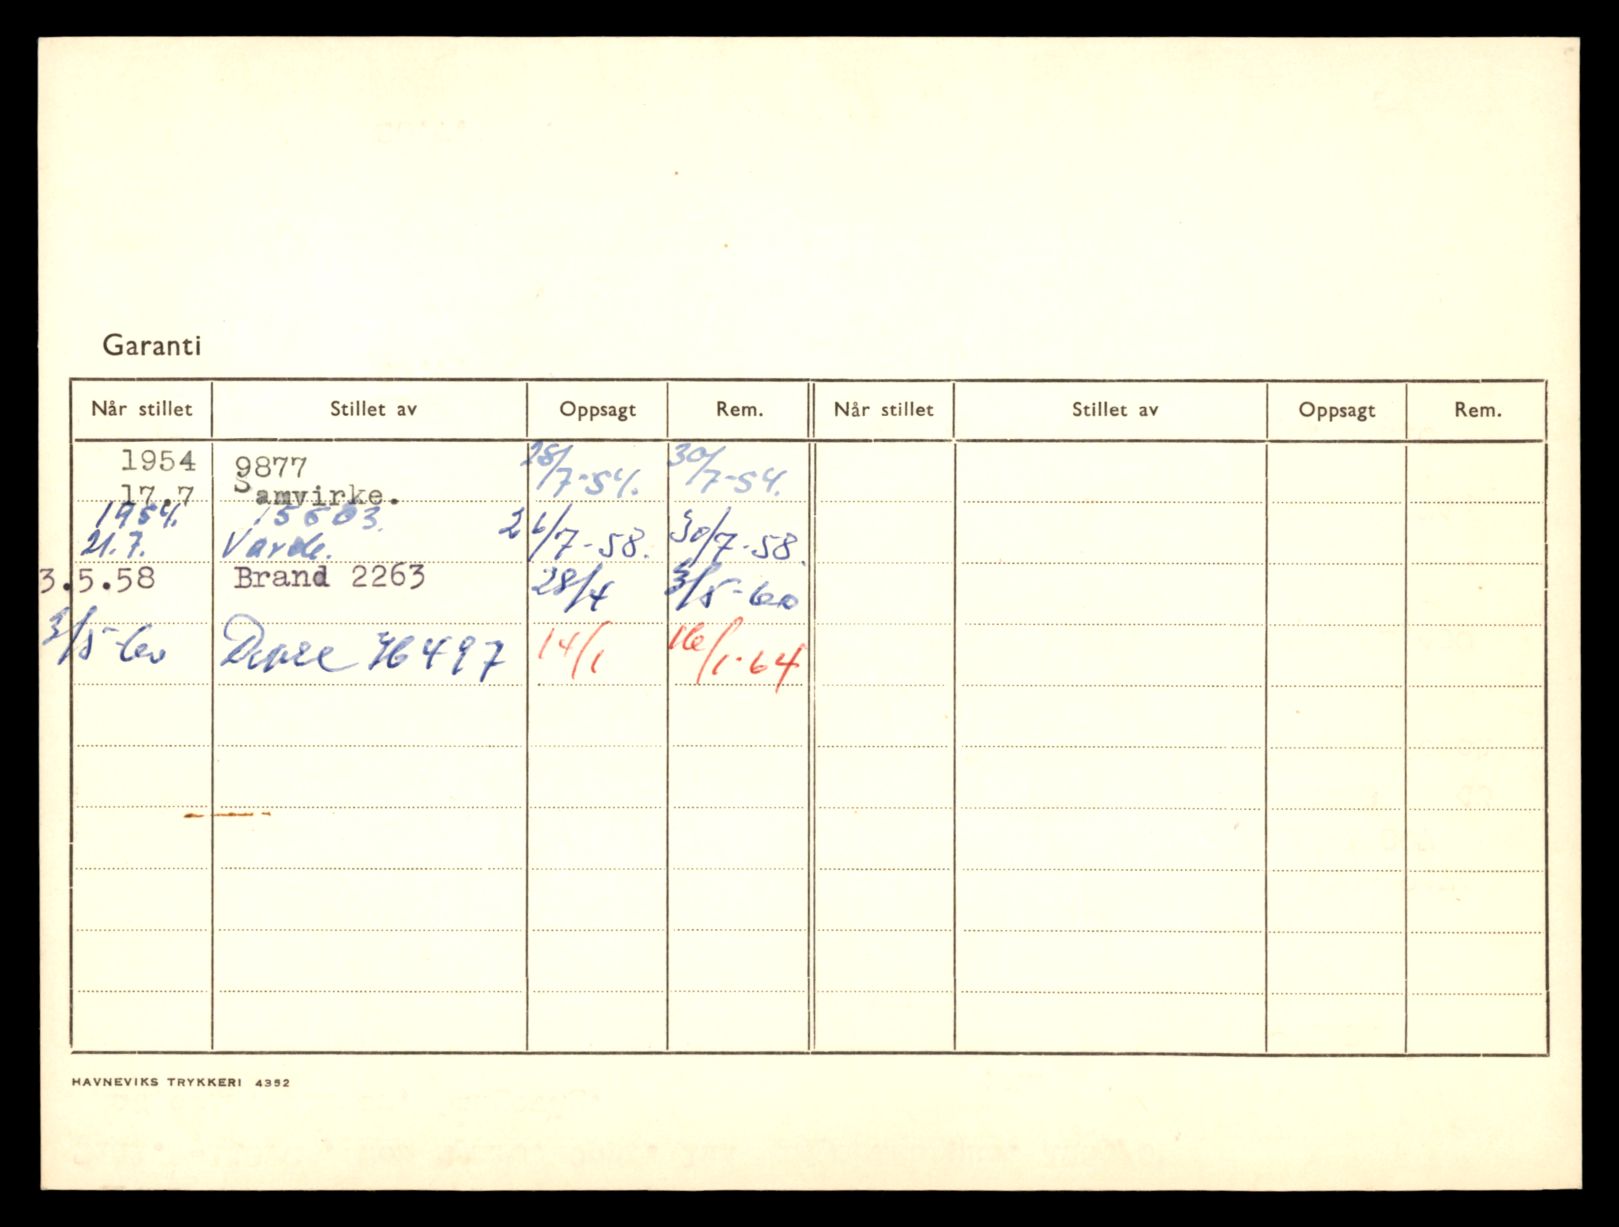 Garanti
Når stillet Stillet av Oppsagt Rem. Når stillet Stillet av Oppsagt Rem.
1954 9877 28/7-54. 30/7-54.
17.7 Samvirke.
1954. 15603. 26/7-58. 30/7-58.
21.7. Varde.
3.5.58 Brand 2263 28/4 3/5-60
3/5-60 76497 14/1 16/1-64
HAVNEVIKS TRYKKERI 4352